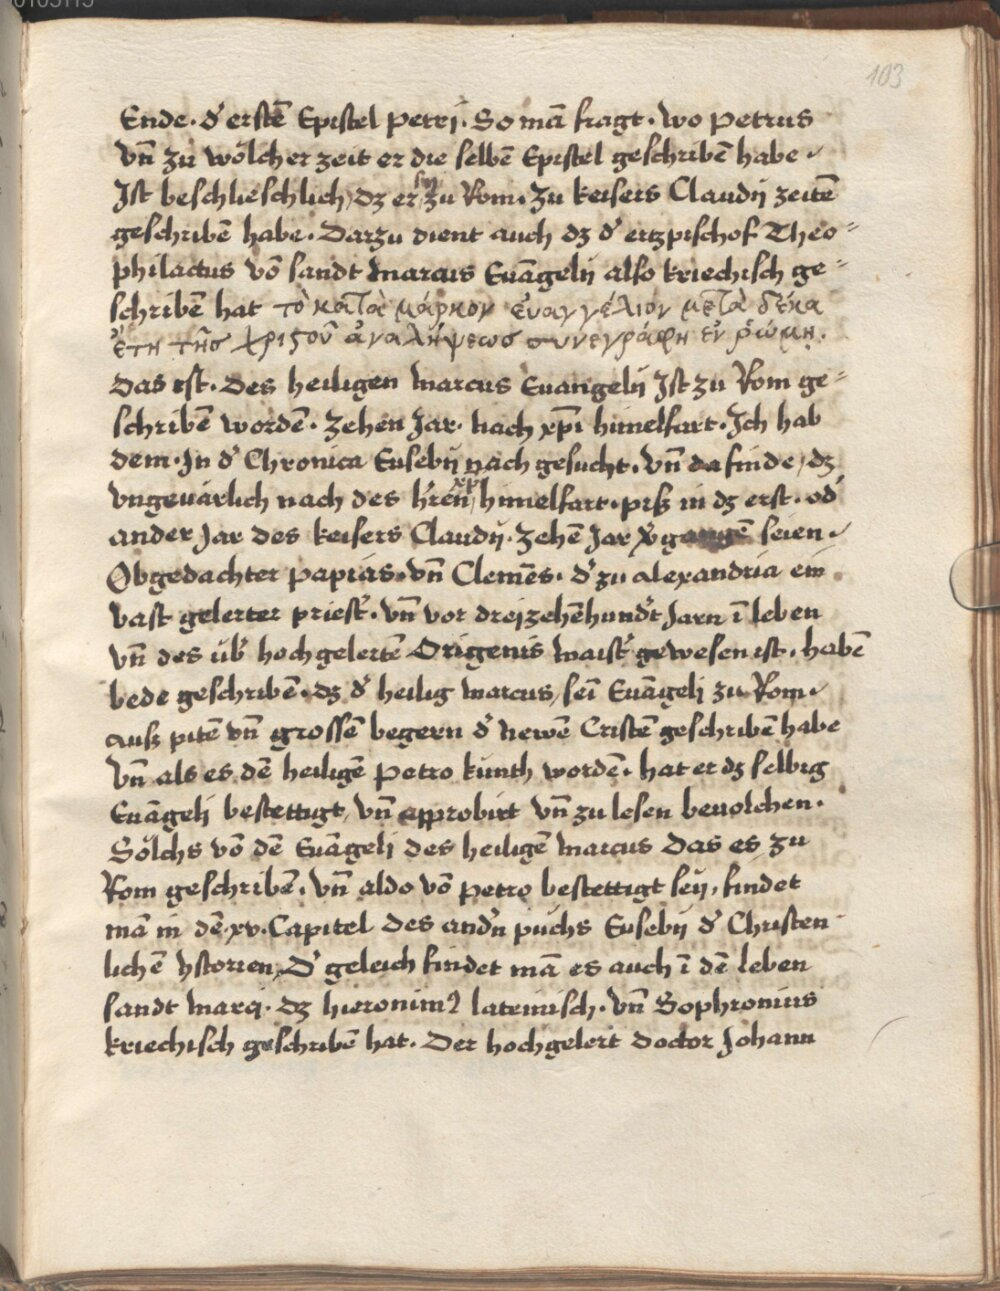 0105115
103
Ende · d' erstē Epistel petrj · So mā fragt · wo petrus
vn̄ zu wölcher zeit er die selbē Epistel geschribē habe ·
Ist beschlieschlich, dz er sy zu Rom · zu keisers Claudij zeitē
geschribē habe · Darzu dient auch dz d' ertzpischof Theo=
philactus vō sandt Marcus Euāgelij also kriechisch ge=
schribē hat τὸ κατὰ μάρκον ἐυαγγέλιον μετὰ δέκα
ἔτη τῆς χριςοῦ ἀναλήψεως συνεγράφη ἐν ῥώμῃ.
Das ist · Des heiligen Marcus Euangelij Ist zu Rom ge=
schribē wordē · Zehen Jar · nach xp̄i himelfart · Ich hab
dem · In d' Chronica Eusebij nach gesucht · vn̄ da finde, dz
vngeuärlich nach des h'rēn xp̄i himelfart · piß in dz erst · od'
ander Jar des keisers Claudij · Zehē Jar v'gangē seien ·
Obgedachter papias · vn̄ Clemēs · d' zu alexandria ein
vast gelerter priest' · vn̄ vor dreizehēhund't Jarn ī leben
vn̄ des üb' hochgelertē Origenis maist' gewesen ist · habē
bede geschribē · dz d' heilig Marcus, sei Euāgelj zu Rom ·
auß pitē vn̄ grossē begern d' newē Cristē geschribē habe
vn̄ als es dē heiligē petro kunth wordē · hat er dz selbig
Euāgelj bestettigt, vn̄ approbirt vn̄ zu lesen beuolchen ·
Sölchs vō dē Euāgelj des heiligē Marcus Das es zu
Rom geschribē · vn̄ aldo vō petro bestettigt sey, findet
mā in dē · xv · Capitel des and'n püchs Eusebij d' Christen
lichē ystorien, D' geleich findet mā es auch ī dē leben
sandt Marcj · dz hieronim9 lateinisch · vn̄ Sophronius
kriechisch geschribē hat · Der hochgelert doctor Johann